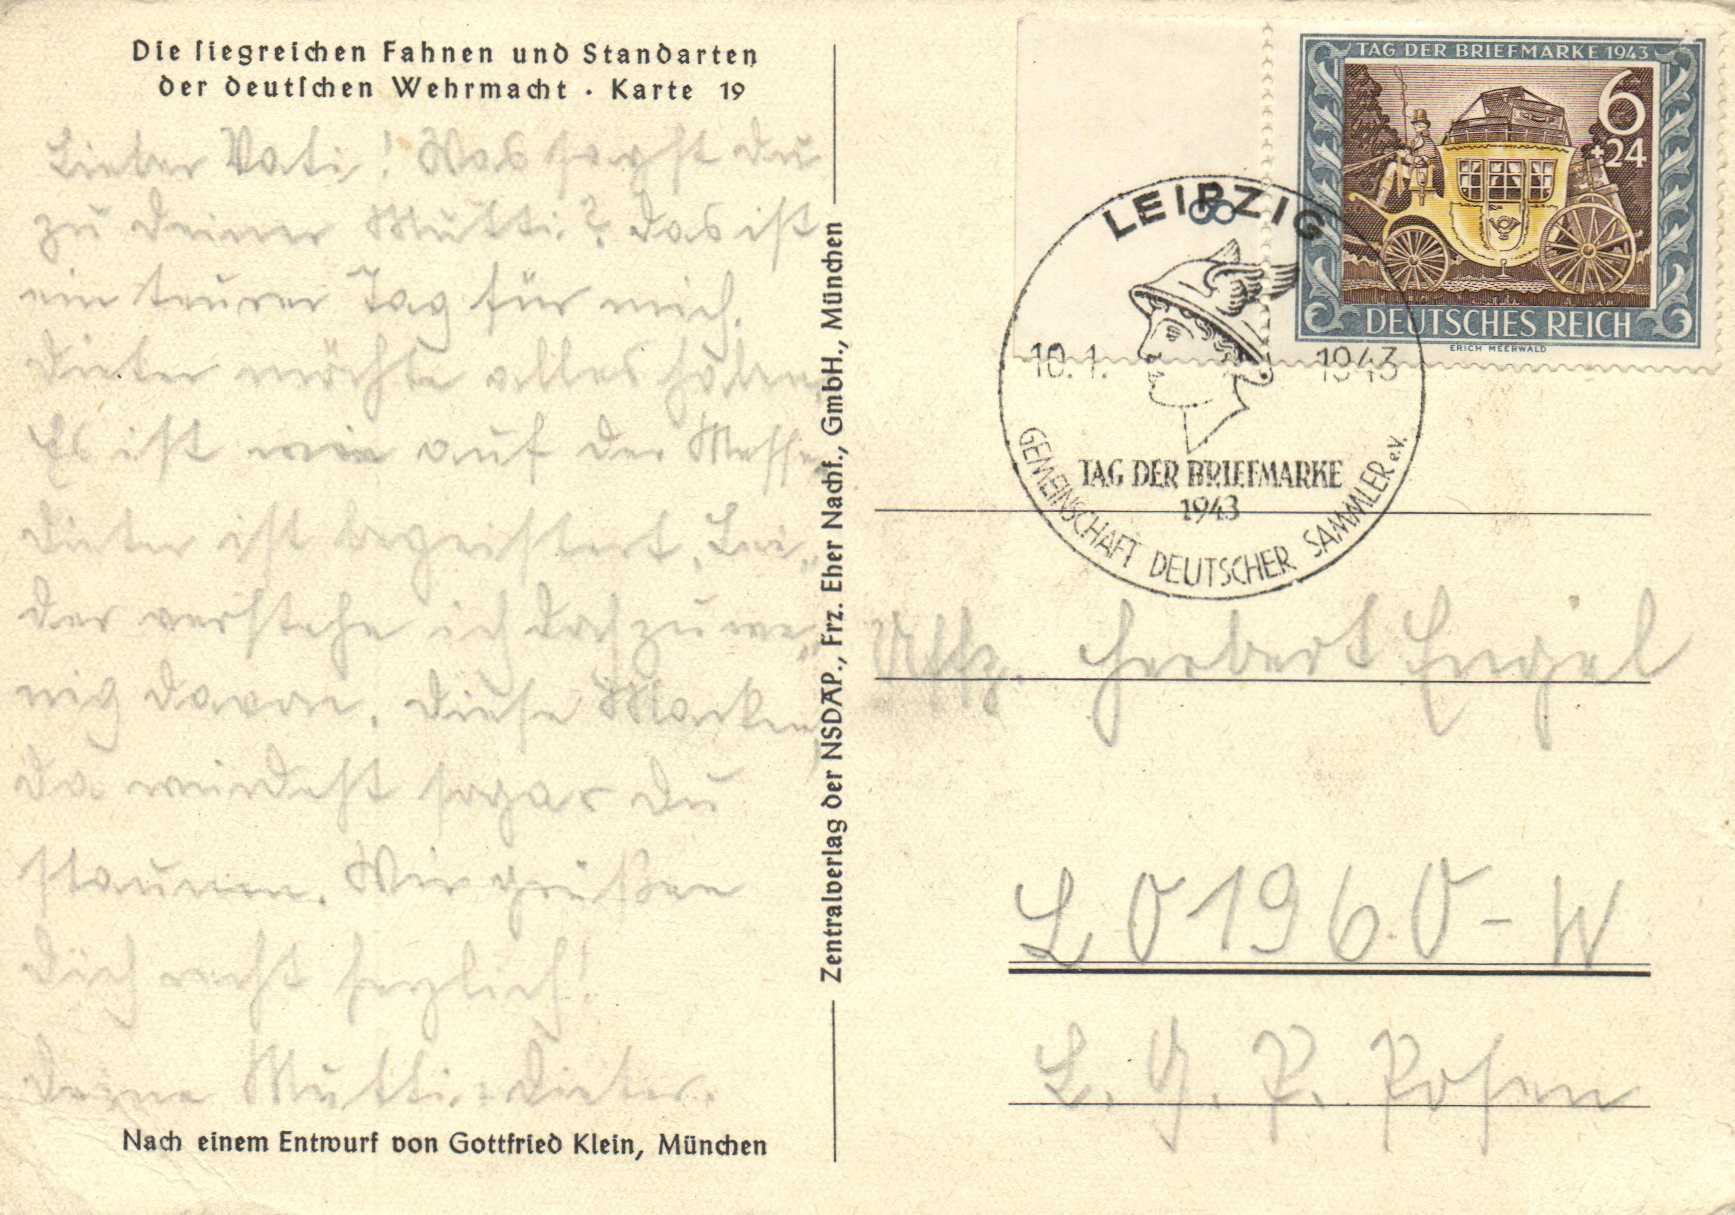 Die siegreichen Fahnen und Standarten
der deutschen Wehrmacht · Karte 19
Lieber Vati! Was sagst du
zu deiner Mutti? Das ist
ein teurer Tag für mich.
Dieter möchte alles haben.
Es ist wie auf der Messe.
Dieter ist begeistert. Lei„
der verstehe ich doch zu we„
nig davon. Diese Marken,
da würdest sogar du
staunen. Wir grüßen
dich recht herzlich!
Deine Mutti u. Dieter.
Nach einem Entwurf von Gottfried Klein, München
Zentralverlag der NSDAP., Frz. Eher Nachf., GmbH., München
TAG DER BRIEFMARKE 1943
6
+24
DEUTSCHES REICH
ERICH MEERWALD
LEIPZIG
10. 1. 1943
TAG DER BRIEFMARKE
1943
GEMEINSCHAFT DEUTSCHER SAMMLER e.V.
Uffz. Herbert Engel
L 01960 - W
L. G. P. Posen